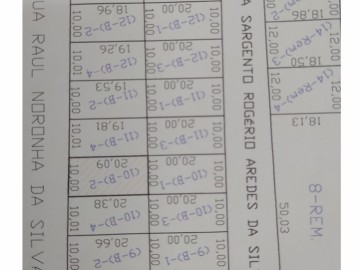 RUA RAUL NORONHA DA SILVA
18,96
(12-B)-2
10,00
19,26
(12-B)-4
10,01
19,53
(11-B)-2
10,00
19,81
(11-B)-4
10,01
20,09
(10-B)-2
10,00
20,38
(10-B)-4
10,01
20,66
(9-B)-2
20,00
(12-B)-1
10,00
10,00
20,00
(12-B)-3
10,00
10,00
20,00
(11-B)-1
10,00
10,00
20,00
(11-B)-3
10,00
10,00
20,00
(10-B)-1
10,00
10,00
20,00
(10-B)-3
10,00
10,00
20,00
(9-B)-1
A SARGENTO ROGÉRIO AREDES DA SIL
18,86
12,00
(14-Rem)-3
12,00
18,50
(14-Rem)-4
12,00
12,00
18,13
8-REM.
50,03